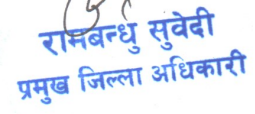 रामबन्धु सुवेदी
प्रमुख जिल्ला अधिकारी